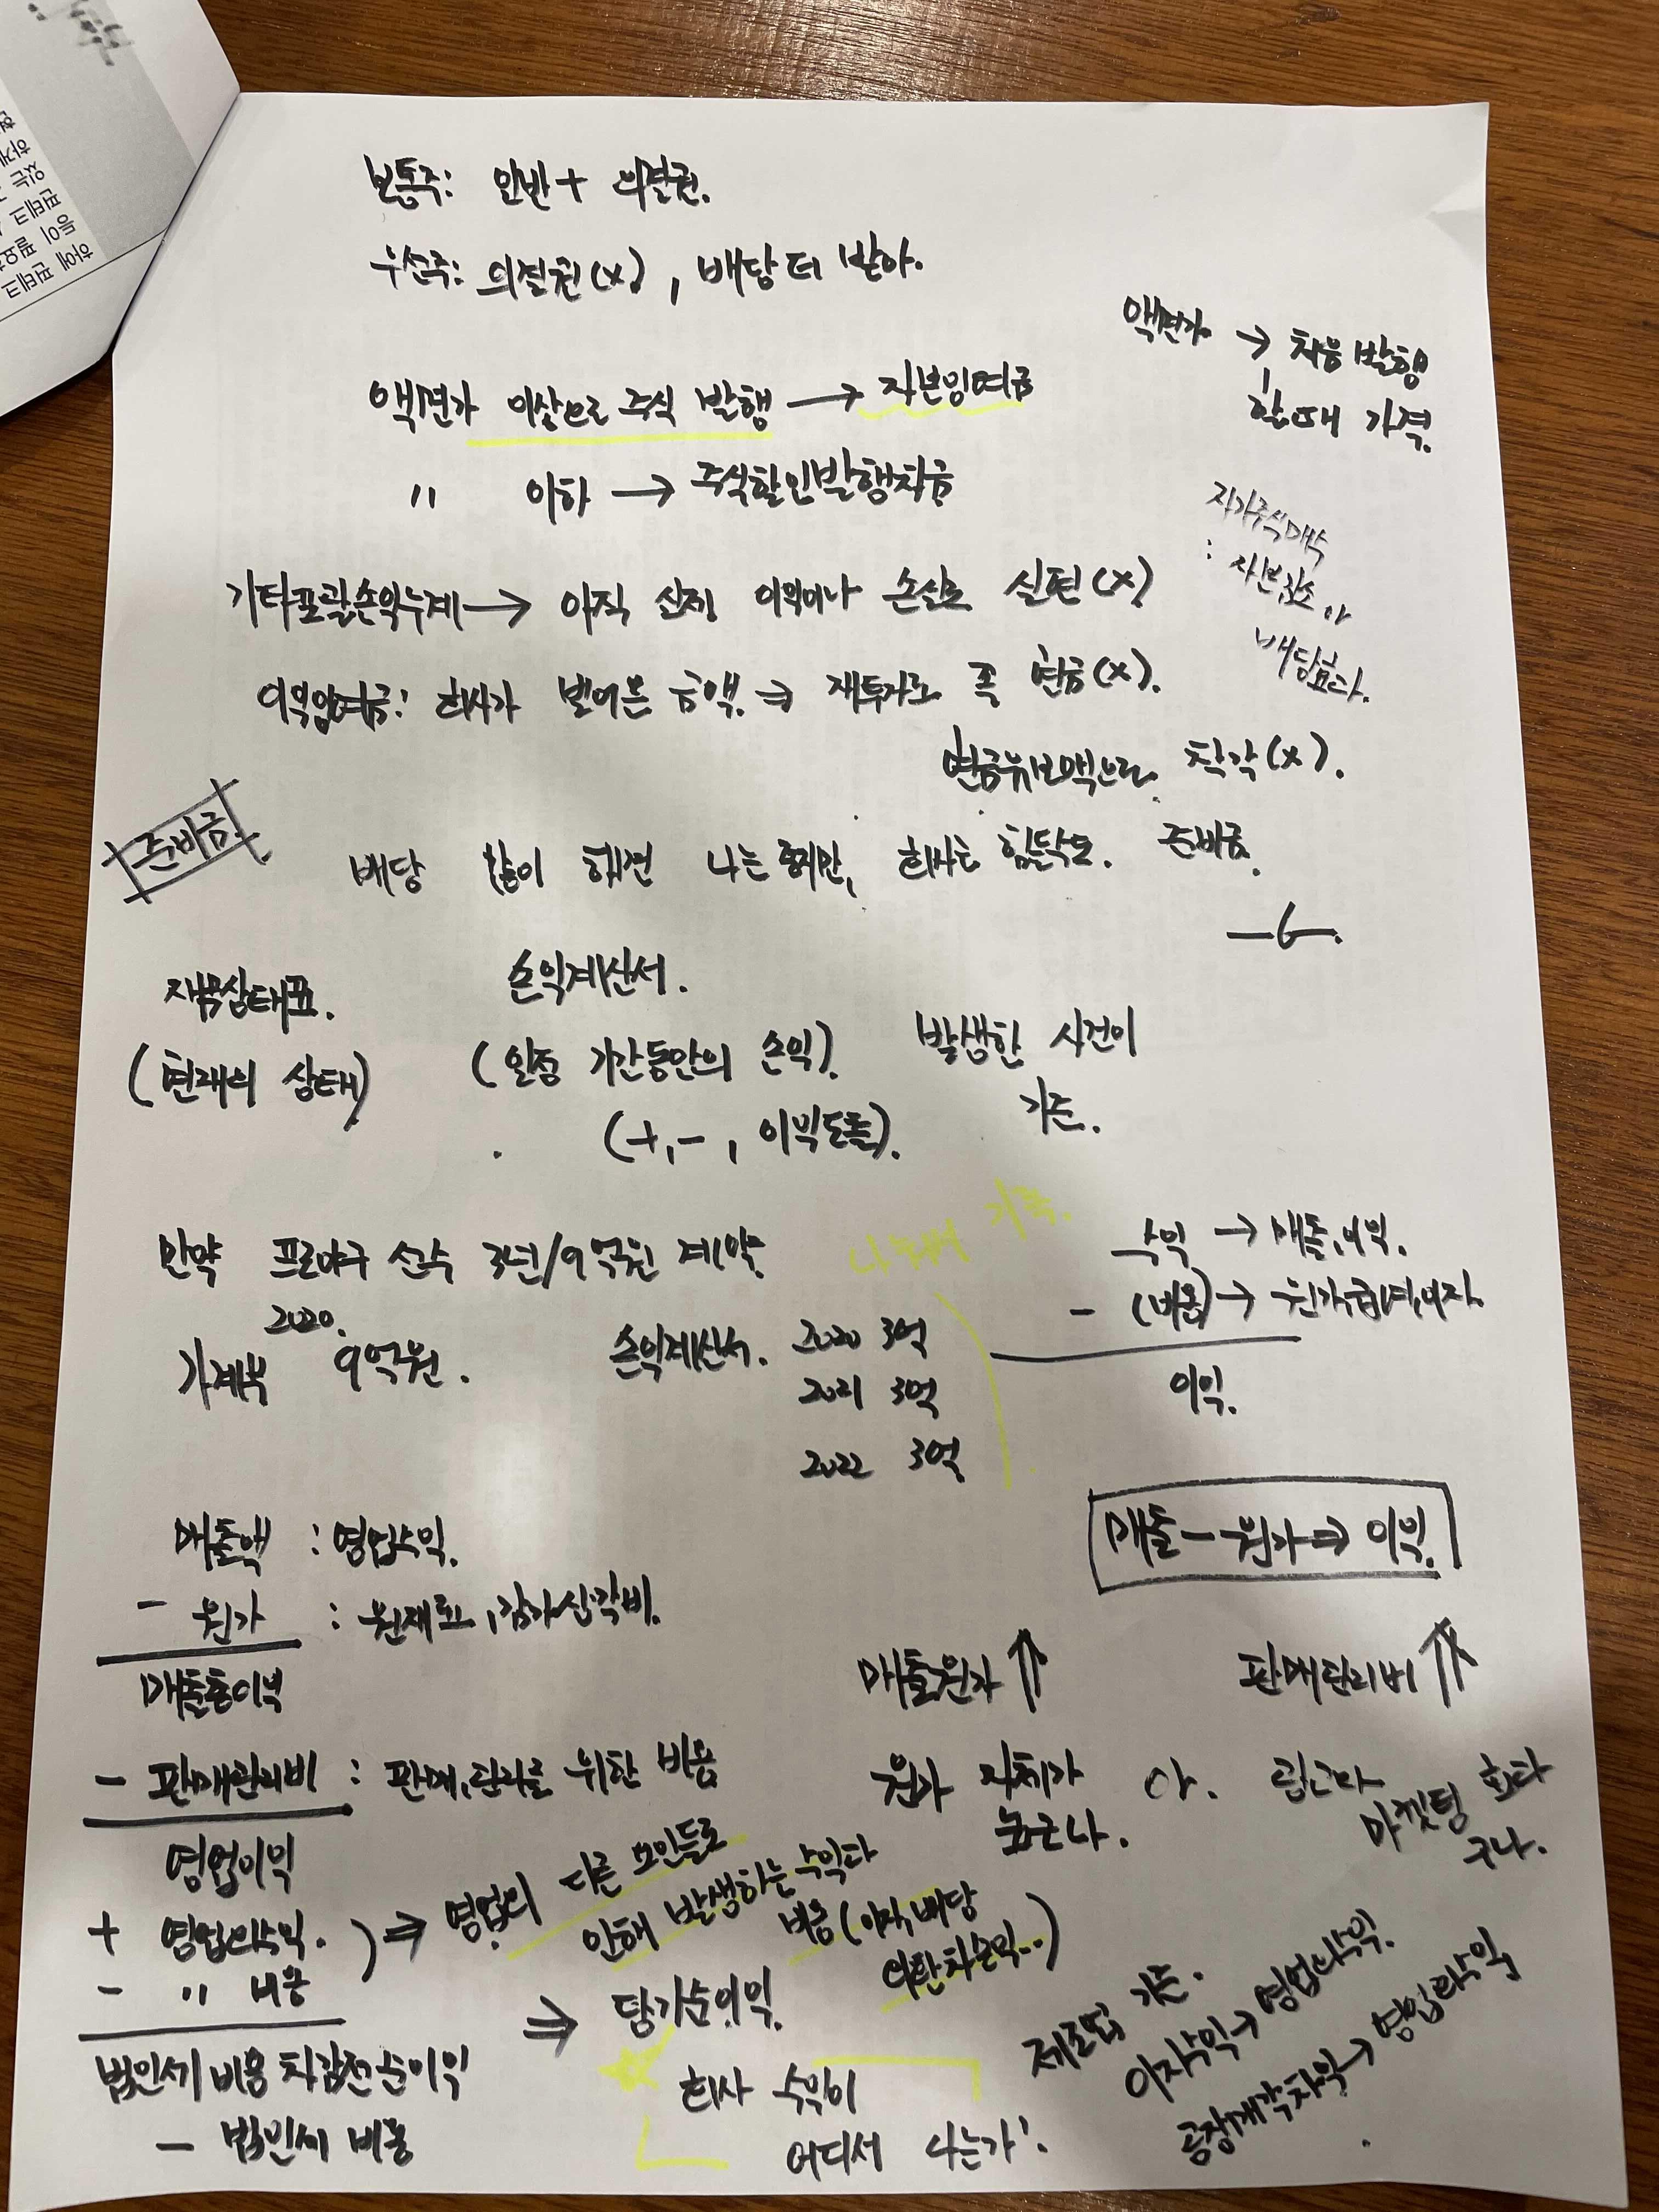 보통주: 일반 + 의결권.
우선주: 의결권(x), 배당 더 받아.
액면가 → 처음 발행
할때 가격.
액면가 이상으로 주식 발행 → 자본잉여금
〃 이하 → 주식할인발행차금
자기주식매각
: 자본감소 나
배당효과.
기타포괄손익누계 → 아직 실제 이익이나 손실로 실현(x)
이익잉여금: 회사가 벌어온 금액. ⇒ 재투자로 쪽 현금(x).
현금유보액으로 착각(x).
준비금
배당 많이 해면 나는 좋지만, 회사는 힘들다. 준비금.
재무상태표.
(현재의 상태)
손익계산서.
(일정 기간동안의 손익).
(+, -, 이익도출).
발생한 사건이
기준.
만약 프로야구 선수 3년/9억원 계약
2020.
가계부 9억원.
손익계산서. 2020 3억
2021 3억
2022 3억
나누어 기록.
수익 → 매출, 이익.
- (비용) → 원가, 급여, 이자.
이익.
매출 - 원가 ⇒ 이익.
매출액 : 영업수익.
- 원가 : 원재료, 감가상각비.
매출총이익
- 판매관리비 : 판매, 관리를 위한 비용
영업이익
+ 영업외수익.
- 〃 비용
⇒ 영업외 다른 요인들로
인해 발생하는 수익과
비용 (이자, 배당
외환차손익..)
법인세 비용 차감전 순이익
- 법인세 비용
⇒ 당기순이익.
회사 수익이
어디서 나는가!
매출원가 ↑
원가 자체가
높구나.
판매관리비 ↑
아.
마켓팅
구나.
제조업 기준.
이자수익 → 영업외수익.
공장매각차익 → 영업외수익